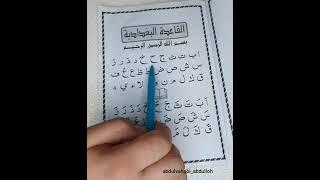 القاعدة البغدادية
بسم الله الرحمن الرحيم
ا ب ت ث ج ح خ د ذ ر ز
س ش ص ض ط ظ ع غ ف
ق ك ل م ن و ه لا ء ي
اَ بَ تَ ثَ جَ حَ خَ دَ ذَ رَ زَ
سَ شَ صَ ضَ طَ ظَ عَ غَ فَ
قَ كَ لَ مَ
abdulvahobi_abdulloh